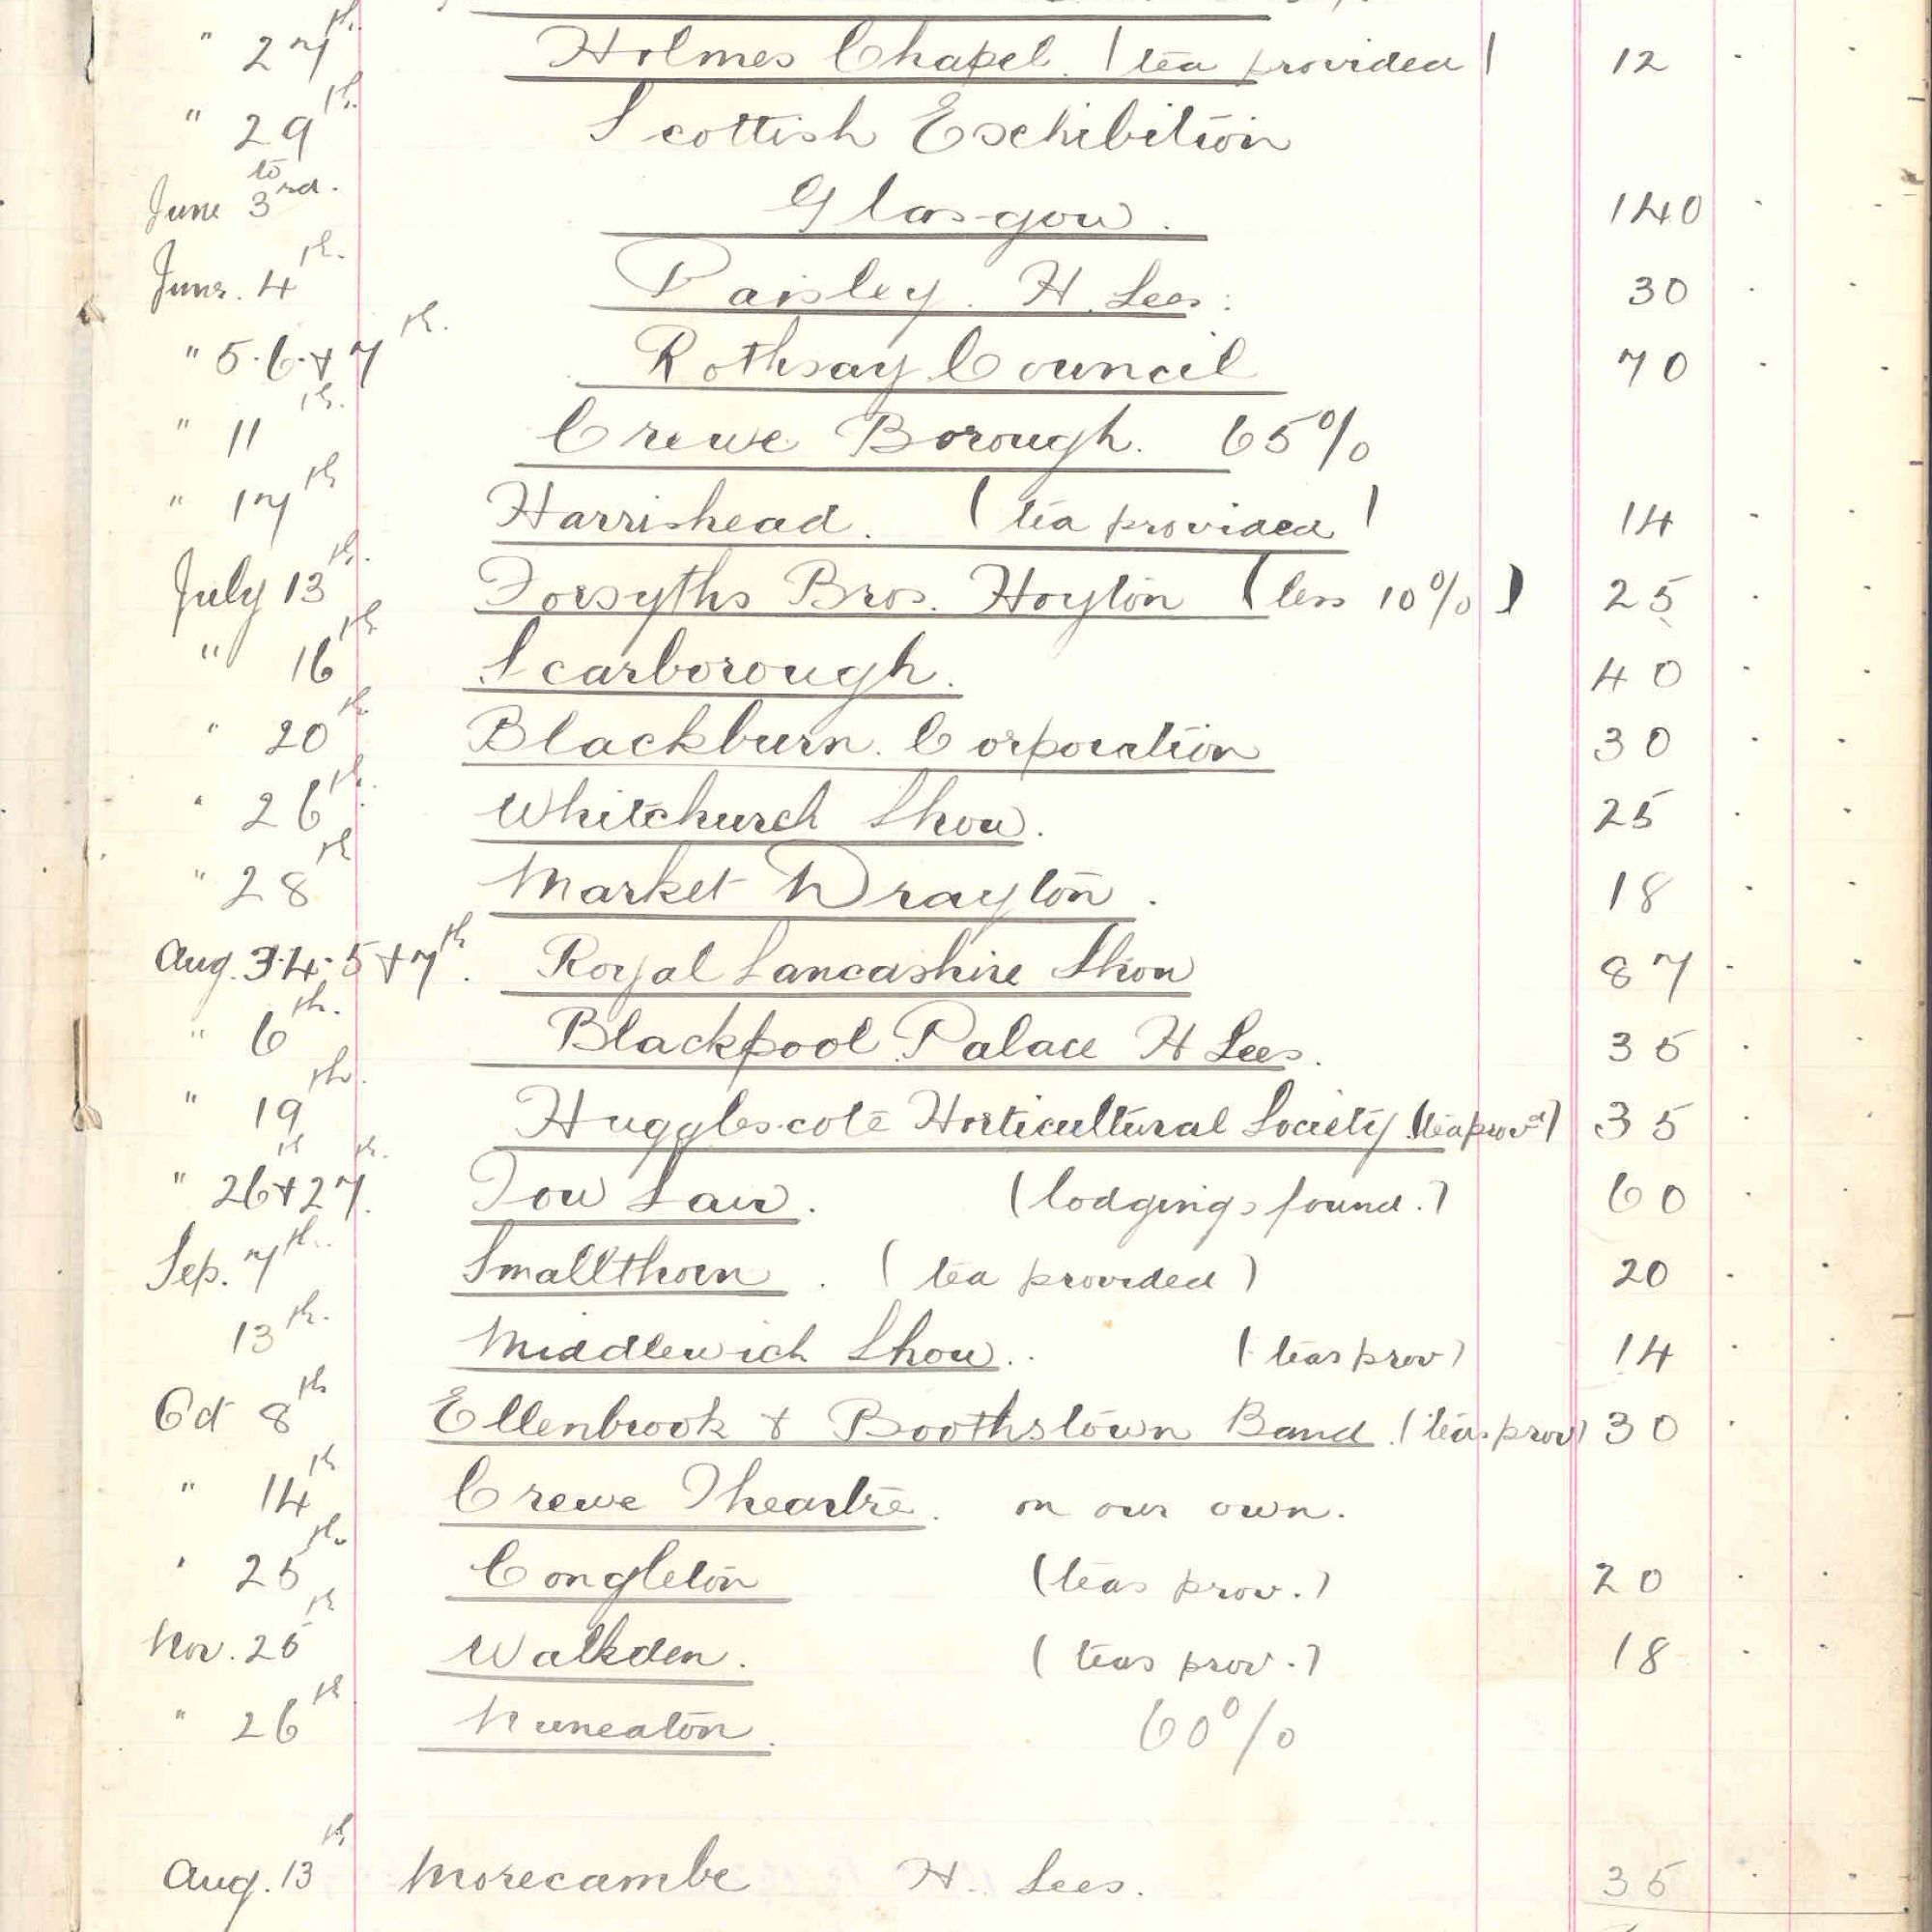 " 27th. Holmes Chapel. (tea provided) 12 . .
" 29th. Scottish Exhibition
to
June 3rd. Glasgow. 140 . .
June. 4th. Paisley. H. Lees. 30 . .
" 5.6.+7th. Rothsay Council 70 . .
" 11th. Crewe Borough. 65%
" 17th Harrishead. (tea provided) 14 . .
July 13th. Forsyths Bros. Hoyton (less 10%) 25 . .
" 16th Scarborough. 40 . .
" 20th Blackburn. Corporation 30 . .
" 26th. Whitchurch Show. 25 . .
" 28th Market Drayton. 18 . .
Aug. 3.4.5+7th. Royal Lancashire Show 87 . .
" 6th. Blackpool Palace H Lees. 35 . .
" 19th. Hugglescote Horticultural Society (tea provd) 35 . .
" 26th+27th. Tow Law. (lodgings found.) 60 . .
Sep. 7th. Smallthorn. (tea provided) 20 . .
13th. Middlewich Show. (teas prov) 14 . .
Oct 8th Ellenbrook & Boothstown Band. (teas prov) 30 . .
" 14th Crewe Theartre. on our own.
" 25th. Congleton (teas prov.) 20 . .
Nov. 25th Walkden. (teas prov.) 18 . .
" 26th Nuneaton. 60%
Aug. 13th Morecambe H. Lees. 35 . .